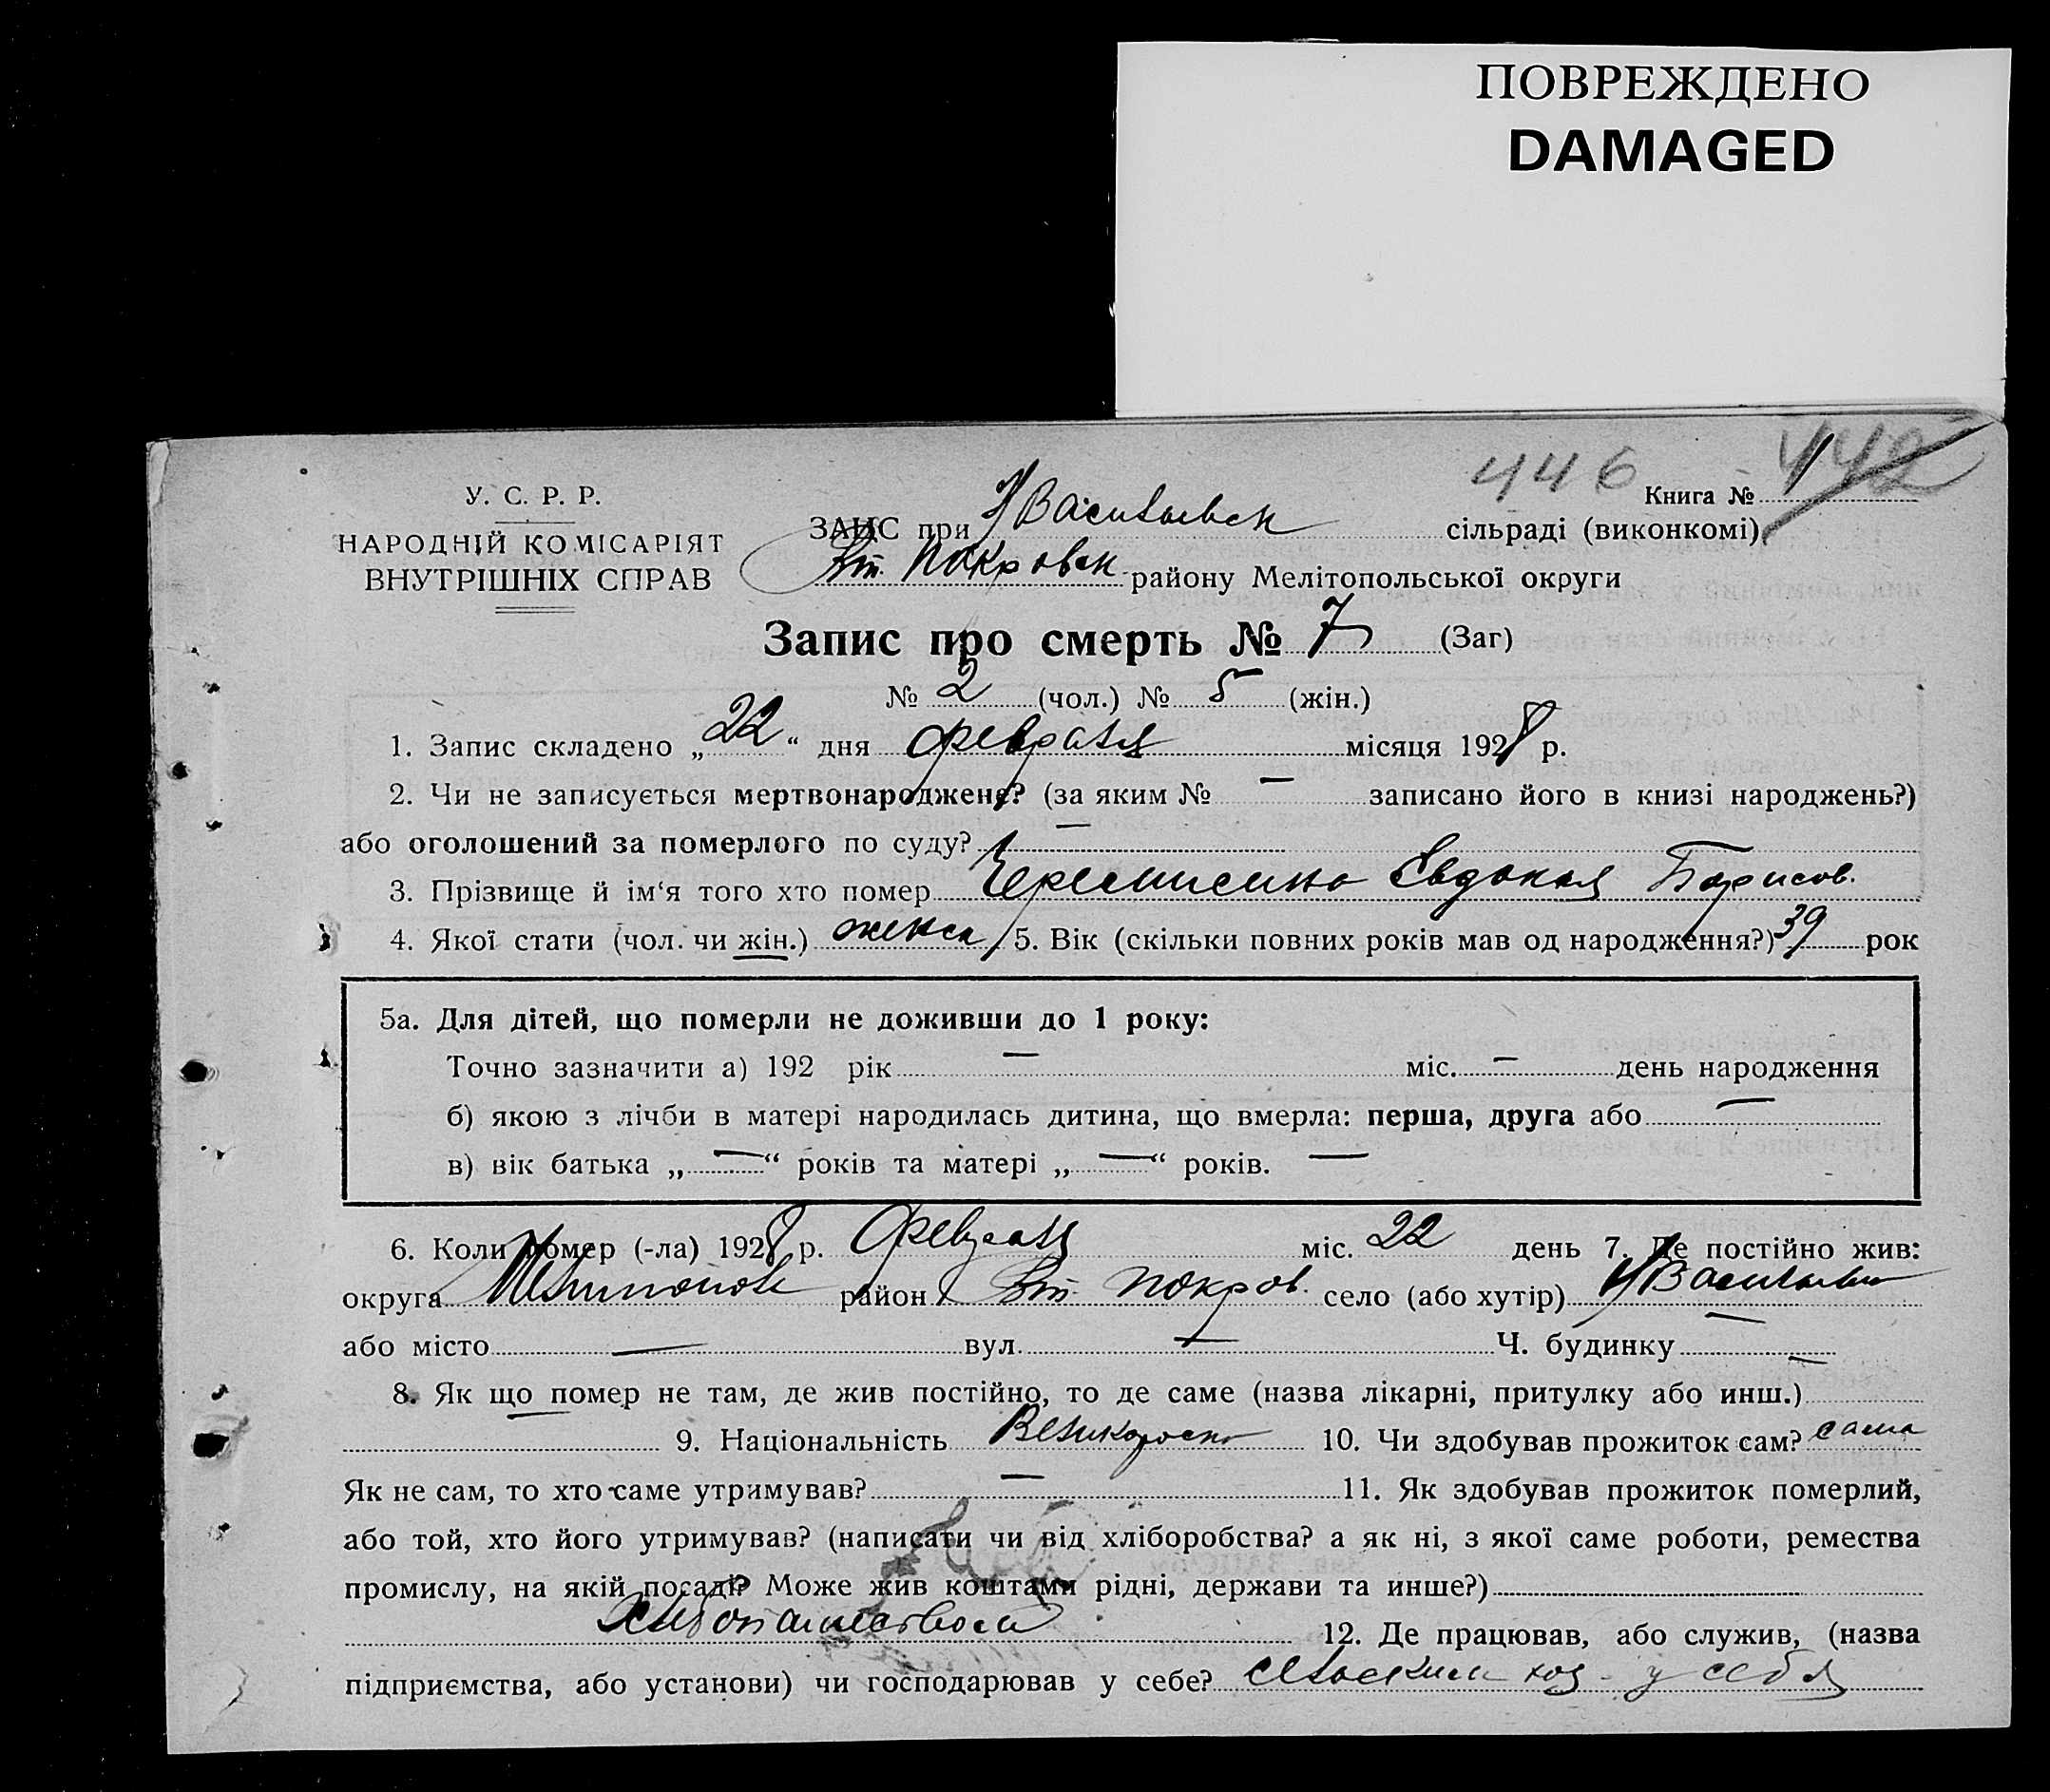 ПОВРЕЖДЕНО
DAMAGED
446
442
У. С. Р. Р.
НАРОДНІЙ КОМІСАРІЯТ
ВНУТРІШНІХ СПРАВ
Книга №
ЗАГС при Н Васильевск сільраді (виконкомі)
Вт. Покровск району Мелітопольської округи
Запис про смерть № 7 (Заг)
№ 2 (чол.) № 5 (жін.)
1. Запис складено „22“ дня февраля місяця 1928 р.
2. Чи не записується мертвонароджене? (за яким № — записано його в книзі народжень?)
або оголошений за померлого по суду? —
3. Прізвище й ім‘я того хто помер Черемисина Евдокия Борисов.
4. Якої стати (чол. чи жін.) женск 5. Вік (скільки повних років мав од народження?) 39 рок
5а. Для дітей, що померли не доживши до 1 року:
Точно зазначити а) 192 рік — міс. — день народження
б) якою з лічби в матері народилась дитина, що вмерла: перша, друга або —
в) вік батька „—“ років та матері „—“ років. —
6. Коли помер (-ла) 1928 р. Февраля міс. 22 день 7. Де постійно жив:
округа район Вт. Покров. село (або хутір) Н Васильевк
або місто — вул. — Ч. будинку —
8. Як що помер не там, де жив постійно, то де саме (назва лікарні, притулку або инш.)
— 9. Національність Великоросс 10. Чи здобував прожиток сам? сама
Як не сам, то хто саме утримував? — 11. Як здобував прожиток померлий,
або той, хто його утримував? (написати чи від хліборобства? а як ні, з якої саме роботи, ремества
промислу, на якій посаді? Може жив коштами рідні, держави та инше?)
Хлебопашеством 12. Де працював, або служив, (назва
підприємства, або установи) чи господарював у себе? сельским хоз - у себя